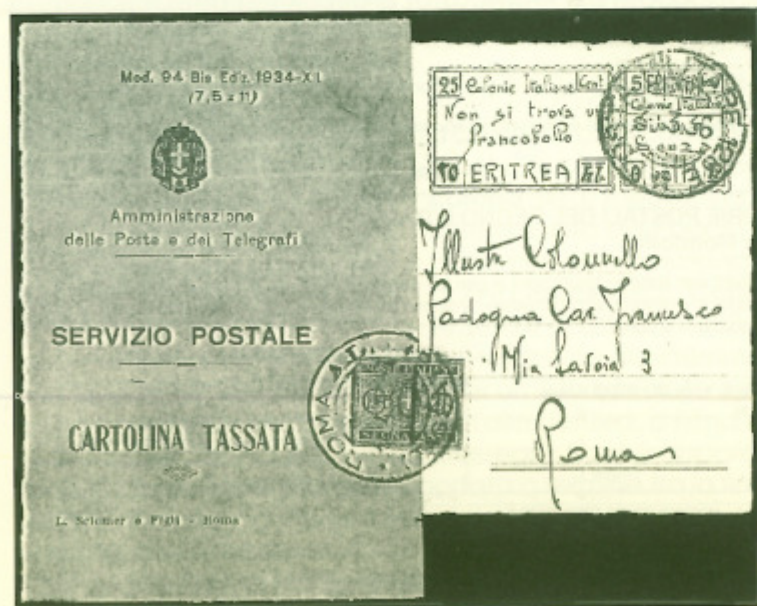 Mod. 94 Bis Ediz. 1934-XII
(7,5 x 11)
Amministrazione
delle Poste e dei Telegrafi
SERVIZIO POSTALE
CARTOLINA TASSATA
L. Scionier e Figli - Roma
ROMA
25 Colonie Italiane Cent
Non si trova un
francobollo
10 ERITREA
5
Colonie Italiane
Illustre Colonnello
Padogna Cav. Francesco
Via Savoia 3
Roma